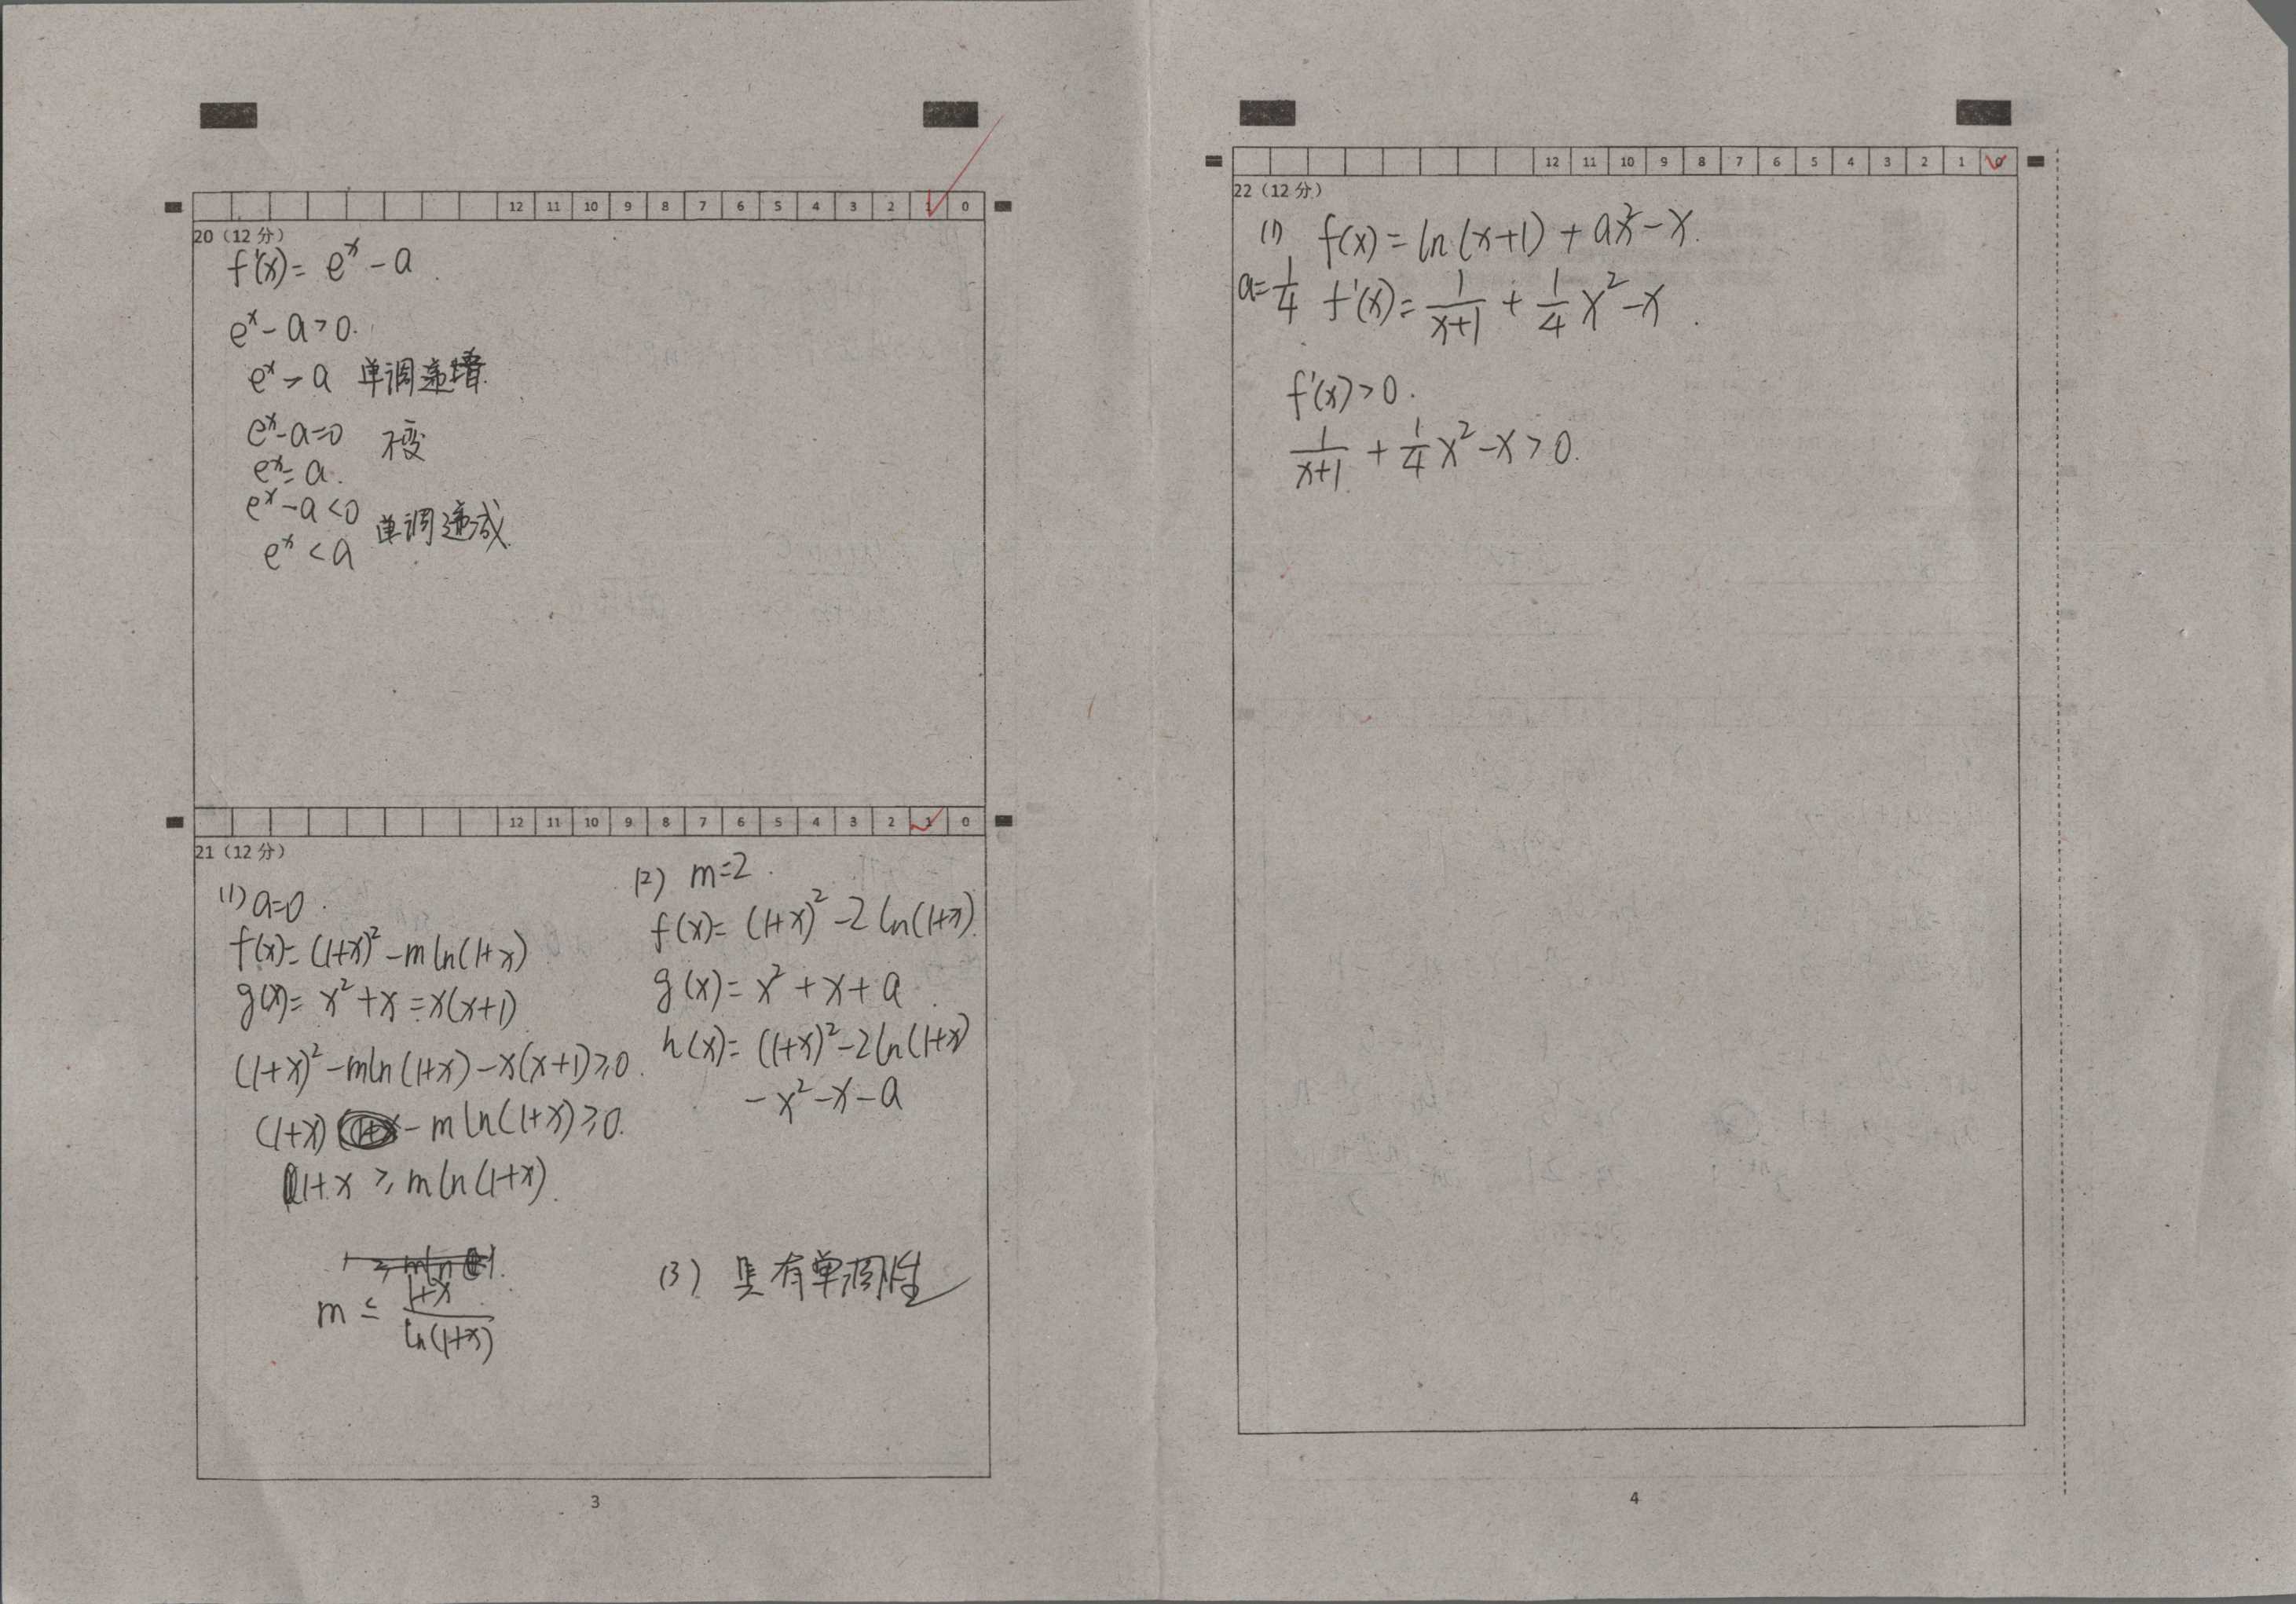 12 11 10 9 8 7 6 5 4 3 2 1 0
20（12 分）
f'(x)= e^x - a
e^x - a > 0.
e^x > a 单调递增.
e^x - a = 0 不变
e^x = a.
e^x - a < 0 单调递减.
e^x < a
12 11 10 9 8 7 6 5 4 3 2 1 0
21（12 分）
(1) a=0.
f(x)= (1+x)^2 - m ln(1+x)
g(x)= x^2 + x = x(x+1)
(1+x)^2 - m ln(1+x) - x(x+1) ≥ 0.
(1+x) - m ln(1+x) ≥ 0.
1+x ≥ m ln(1+x).
m ≤ \frac{1+x}{ln(1+x)}
(2) m=2.
f(x)= (1+x)^2 - 2 ln(1+x)
g(x)= x^2 + x + a.
h(x)= (1+x)^2 - 2 ln(1+x)
- x^2 - x - a
(3) 具有单调性
3
12 11 10 9 8 7 6 5 4 3 2 1 0
22（12 分）
(1) f(x) = ln(x+1) + ax^2 - x.
a=\frac{1}{4} f'(x)= \frac{1}{x+1} + \frac{1}{4}x^2 - x.
f'(x) > 0.
\frac{1}{x+1} + \frac{1}{4}x^2 - x > 0.
4